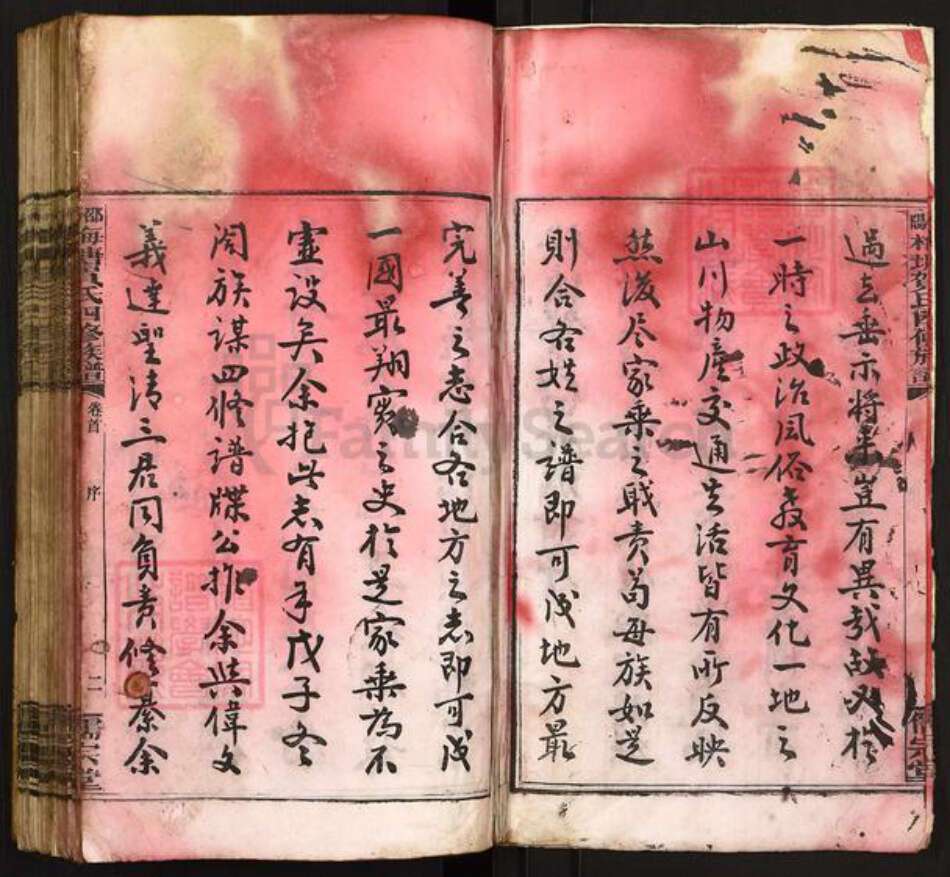 過去垂示將來豈有異哉故必於
一時之政治風俗教育文化一地之
山川物產交通生活皆有所反映
然後尽家乘之職責苟每族如是
則合各姓之譜即可成地方最
完善之志合各地方之志即可成
一國最翔實之史於是家乘為不
虛设矣余抱此志有年戊子冬
闔族謀四修譜牒公推余與偉文
義達聖清三君同負責修纂余
氏四修族譜
卷首
序
二
FamilySearch